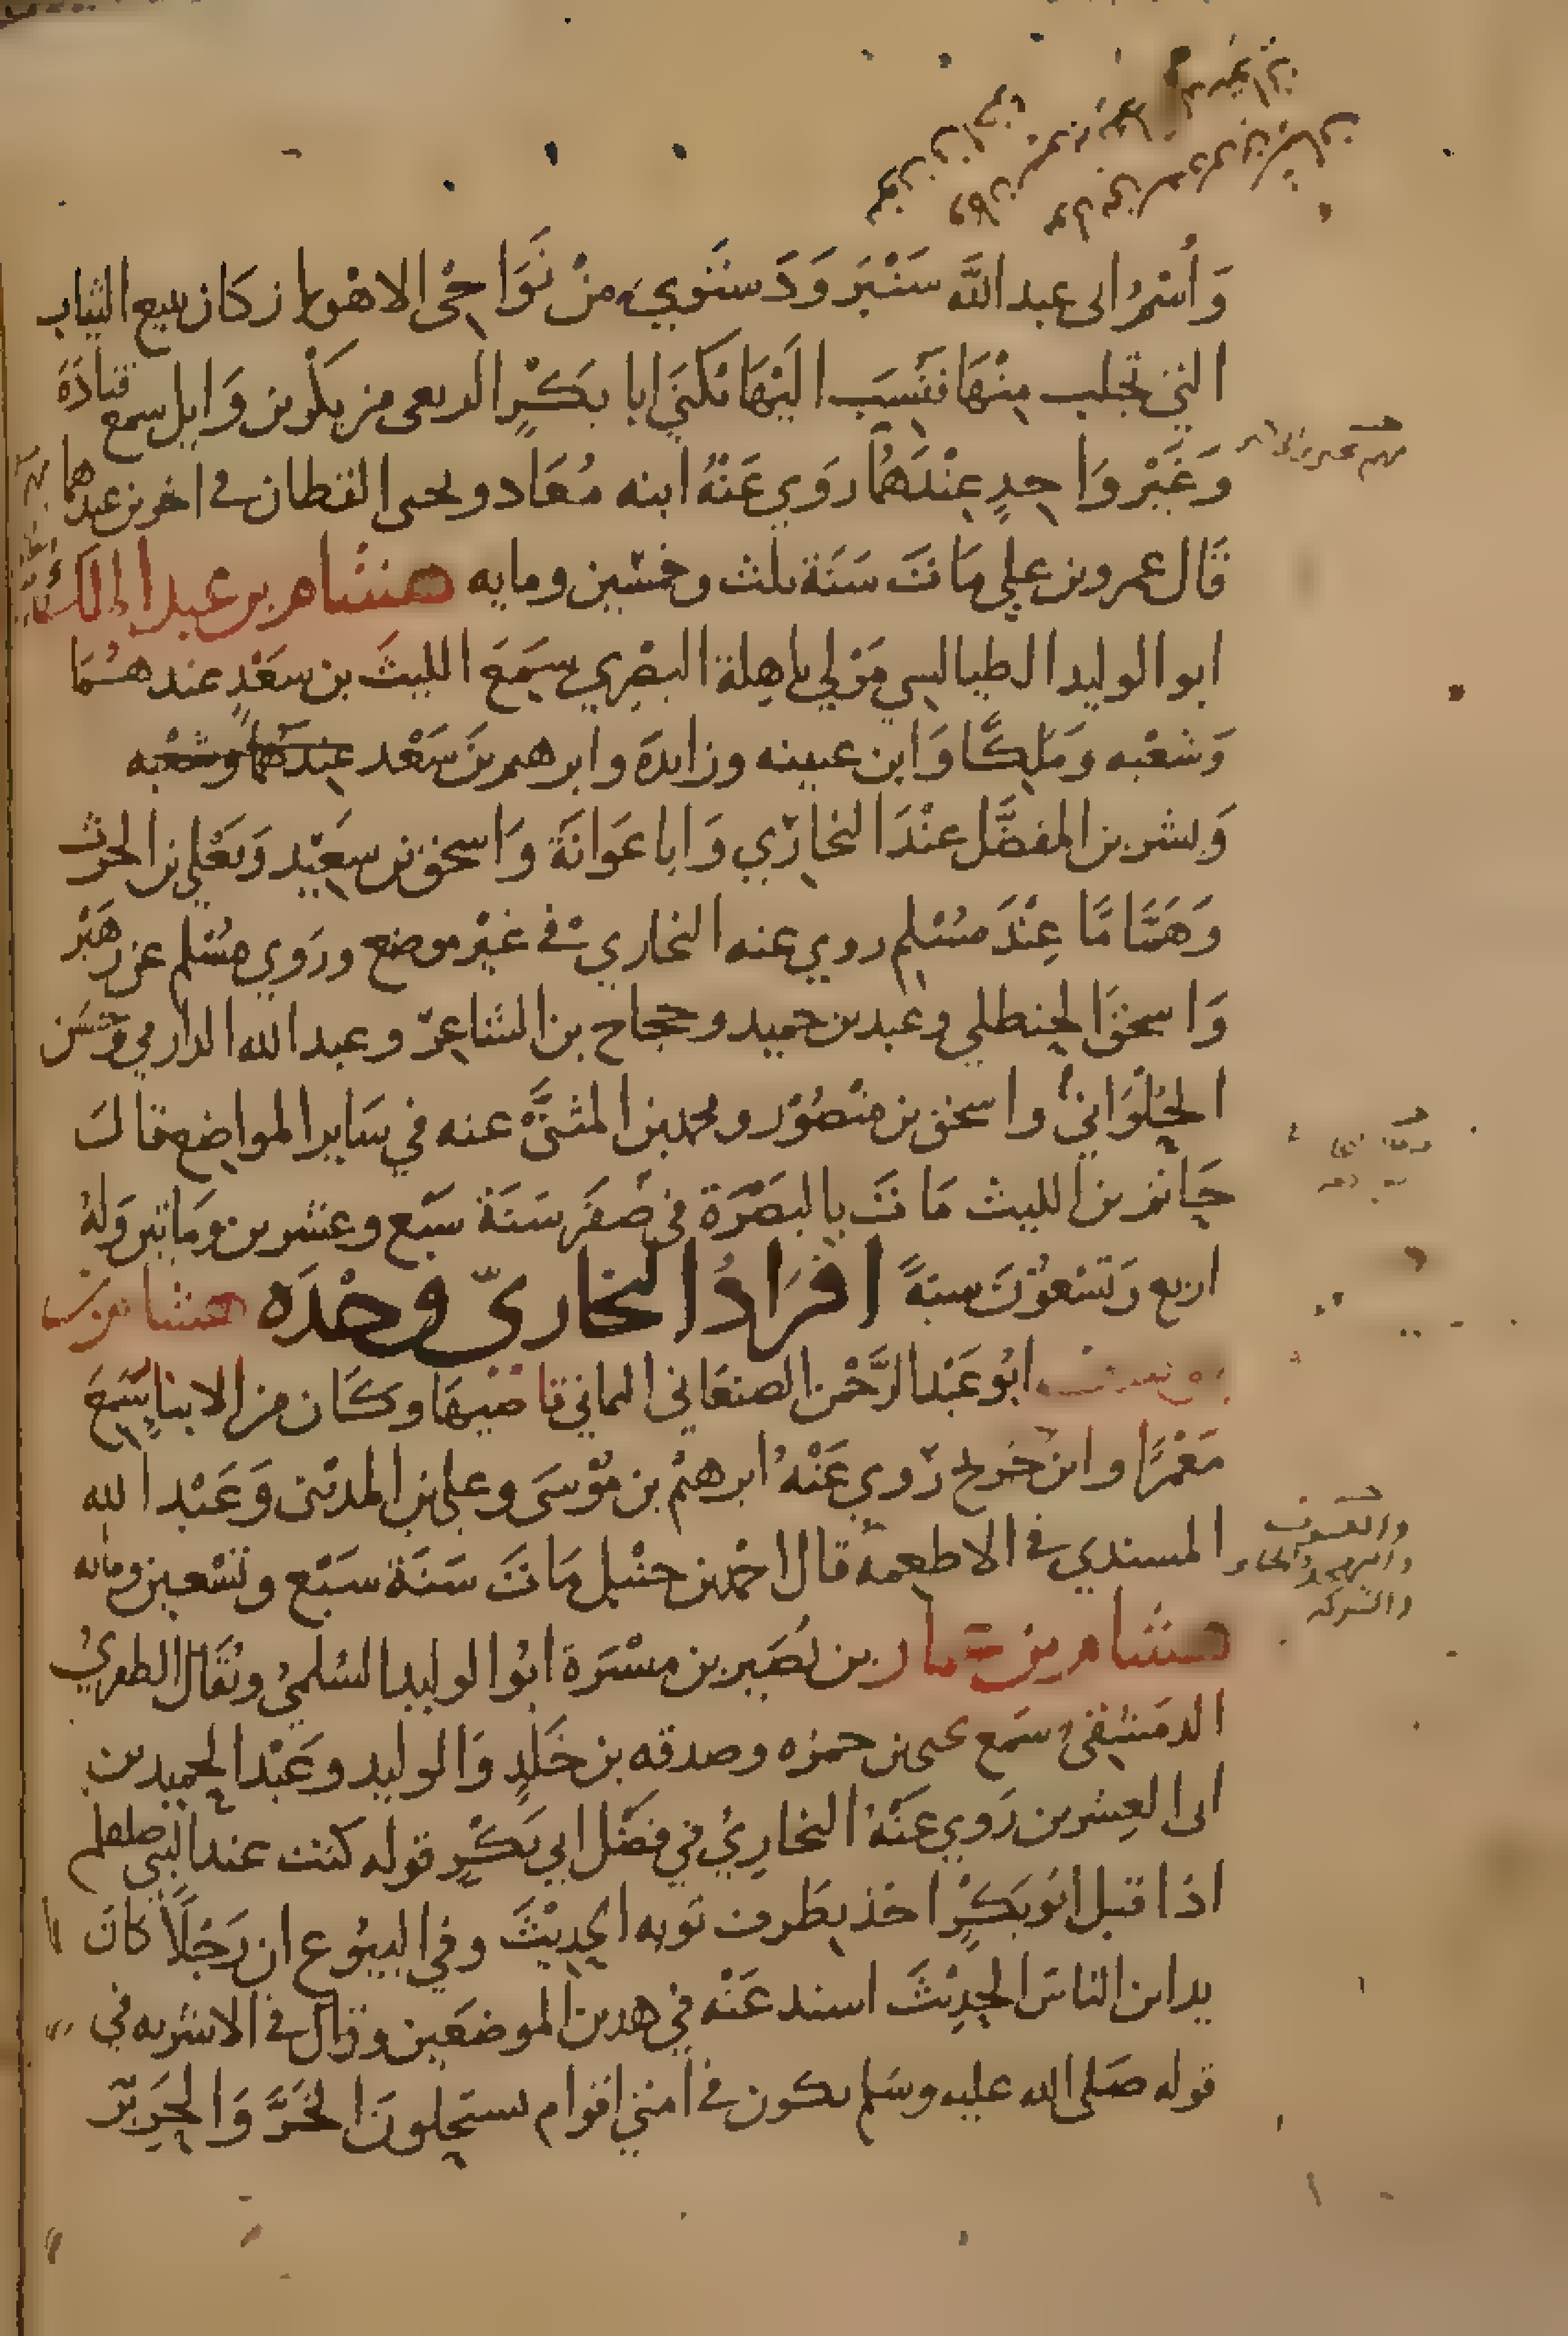 وَاسْمُ ابى عبد الله سَنْبَر وَدَستَوي من نَوَاحى الاهواز كان يبيع الثياب
التى تجلب مِنْهَا فنُسِبَ اليْهَا يكنى ابا بَكْرٍ الربعى من بكر بن وَايل سمع قتادَة
وَغَيْر وَاحِدٍ عِنْدَهُما رَوي عَنْهُ ابنه مُعَاد ويحيى القطان فى اخرين عندهما
قَال عمرو بن علي مَاتَ سَنَة ثلث وخمسين ومايه هشام بن عبد الملك
ابو الوليد الطيالسي مَوْلي باهِلة البصْرِي سَمِعَ الليثَ بن سَعْدٍ عند هما
وَشعْبه ومَالِكًا وَابن عيينه وزايدة وابرهيم بنَ سَعْد عِنْدَهُمَا وشعْبه
وَبشر بن المفضَّل عنْدَ البخارّي وَابا عَوَانَة وَاسحق بن سعِيْد وَيَعْلي بن الحرث
وَهَمَّامًا عِنْدَ مسْلم روي عنه البخاري في غيْر موضع ورَوي مُسْلم عن زهيْر
وَاسحق الحنظلي وعبد بن حميد وحجاج بن الشاعِرْ وعبد الله الدارمي وحسَن
الحُلوَاني واسحق بن منْصُوْر ومحمد بن المثنَّى عنه في سَاير المواضع قال
حَاتم بن الليث مَاتَ بالبَصْرَة في صَفَر سَنَة سَبْع وعشرين ومَاتين وَلهُ
اربع وَتسْعوُنَ سنةً افرَادُ البخاريّ وحْدَه هشام بن
يوسف ابُو عَبْد الرَّحْمن الصنعَاني اليماني قاضيهَا وكَان من الابنا سَمِعَ
مَعْمَرًا وابن جُريج رَوي عَنْهُ ابرهيْم بن مُوْسَى وعلي بن المدْيني وَعَبْد الله
المسندي في الاطعمه قال احْمد بن حنْبل مَاتَ سَنَة سَبْع وتسْعين ومايه
هشام بن عمار بن نُصَير بن ميْسَرَة ابُو الوليد السُلميُ ويُقَال الظفريُ
الدمَشقى سَمِع يحيى بن حمزه وصدقه بن خَلدٍ وَالوليد وعَبْد الحميد بن
ابى العِشرين رَوي عَنْهُ البخارِيُ في فضْل ابى بَكْرٍ قوله كنت عند النبي صلعم
اذ اقبل ابُو بَكْرٍ اخذ بطَرف ثوبه الحدِيْثَ وفي البيُوع ان رَجُلًا كان
يداين الناسَ الحدِيْثَ اسند عَنْه في هدين الموضعَين وقال فى الاشربه في
قوله صَلى الله عليه وسَلم يكون فى امتى اقوام يستحلونَ الخزَّ وَالحرِيْر
والكسوف
والتهجد والحج
والشركه